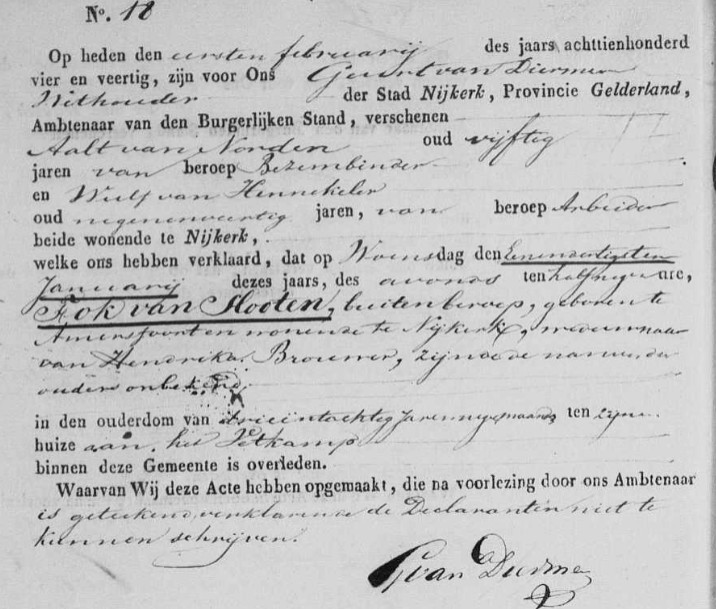 No. 18
Op heden den eersten februarij des jaars achttienhonderd
vier en veertig, zijn voor Ons Geurt van Diermen
Withouder der Stad Nijkerk, Provincie Gelderland,
Ambtenaar van den Burgerlijken Stand, verschenen
Aalt van Norden oud vijftig
jaren van beroep Bezembinder
en Wulf van Hennekeler
oud negenenveertig jaren, van beroep Arbeider
beide wonende te Nijkerk,
welke ons hebben verklaard, dat op Woensdag den Eenendertigsten
Januarij dezes jaars, des avonds ten half negen ure,
Fok van Slooten, buiten beroep, geboren te
Amersfoort en wonende te Nijkerk, weduwnaar
van Hendrika Brouwer, zijnde de namen der
ouders onbekend
in den ouderdom van drieentachtig jaren negen maanden ten zijne
huize aan het
binnen deze Gemeente is overleden.
Waarvan Wij deze Acte hebben opgemaakt, die na voorlezing door ons Ambtenaar
is geteekend, verklarende de Declaranten niet te
kunnen schrijven.
GvanDiermen